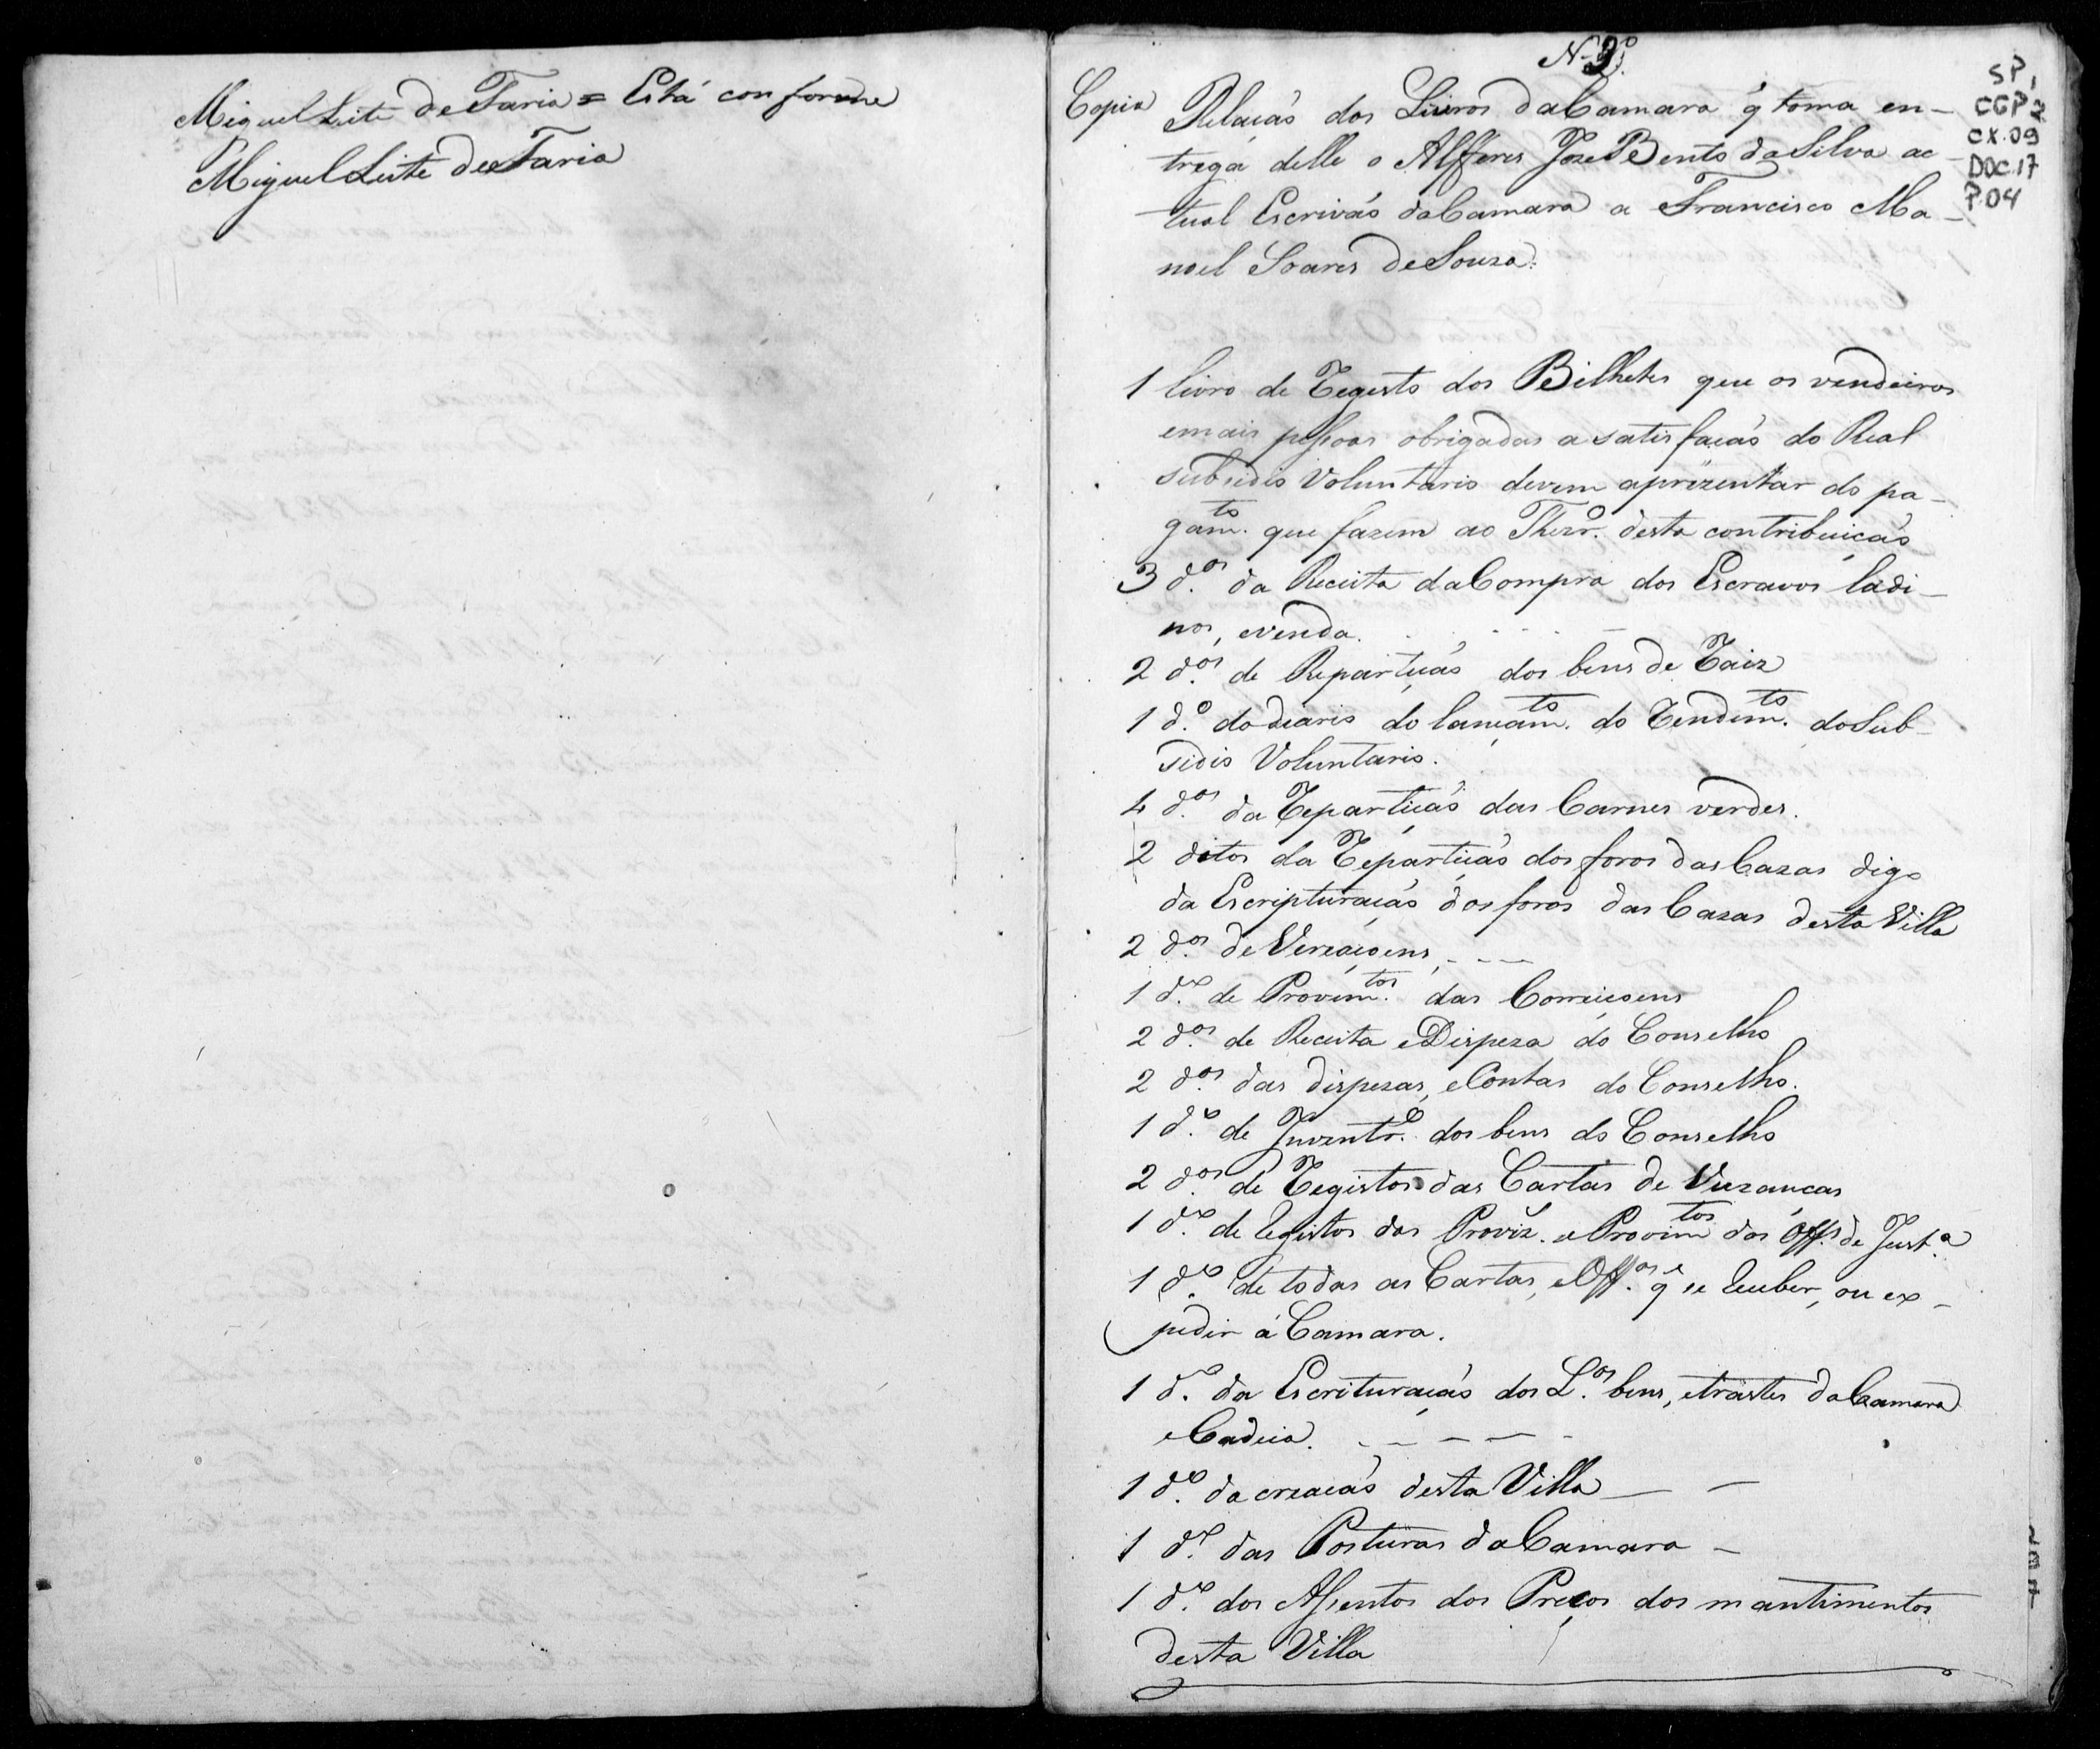 Miguel Leite de Faria = Está conforme
Miguel Leite de Faria
N. 9º
Copia
Relaçaõ dos Livros da Camara q̃ toma en-
trega delle o Alfferes Joze Bento da Silva ac-
tual Escrivaõ da Camara a Francisco Ma-
noel Soares de Souza.
SP,
CGP2
CX.09
DOC.17
P.04
1 livro de Registo dos Bilhetes que os vendeiros
emais pessoas obrigadas a satisfaçaõ do Real
subsidio Voluntario devem aprezentar do pa-
gam.to que fazem ao Thezr.o desta contribuiçaõ
3 d.os da Receita da Compra dos Escravos ladi-
nos, evenda.
2 d.os de Repartiçaõ dos bens de Raiz
1 d.o do diario do lançam.to do Rendim.to do Sub-
sidio Voluntario.
4 d.os da Repartiçaõ das Carnes verdes.
2 ditos da Repartiçaõ dos foros das Cazas digo
da Escripturaçaõ dos foros das Cazas desta Villa
2 d.os de Vereaçoens,
1 d.o de Provim.tos das Correiçoens
2 d.os de Receita eDispeza do Conselho
2 d.os das dispezas, eContas do Conselho.
1 d.o de Inventr.o dos bens do Conselho
2 d.os de Registos das Cartas de Vuzanças
1 d.o de Registos das Proviz. e Provim.tos dos Off.s de Just.a
1 d.o de todas as Cartas, eOff.os q̃ se Receber, ou ex-
pedir á Camara.
1 d.o da Escrituraçaõ dos L.os bens, etrastes da Camara
eCadeia.
1 d.o da creaçaõ desta Villa
1 d.o das Posturas da Camara
1 d.o dos Assentos dos Preços dos mantimentos
desta Villa